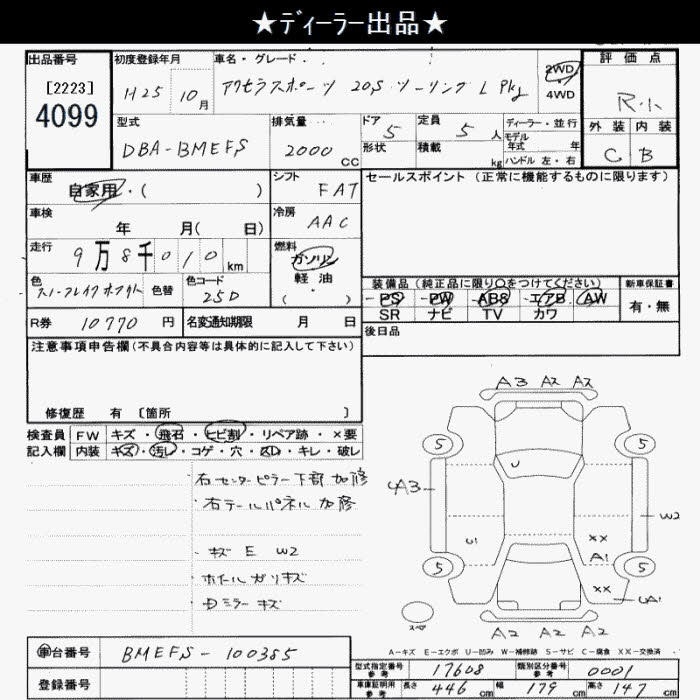 ★ディーラー出品★
出品番号 初度登録年月 車名・グレード 評価点
[2223] H25 10月 アクセラスポーツ 20S ツーリング L Pkg 2WD・4WD R・1
4099
型式 排気量 ドア 5 定員 5人 ディーラー・並行 外装 内装
DBA-BMEFS 2000cc 形状 積載 kg モデル年式 年 C B
ハンドル 左・右
車歴 シフト セールスポイント (正常に機能するものに限ります)
自家用・( ) FAT
車検 冷房
年 月( 日) AAC
走行 燃料
9万8千010km ガソリン
軽油
色 色替 色コード ( ・ ) 装備品 (純正品に限り○をつけてください) 新車保証書
スノーフレイクホワイト 25D PS PW ABS エアB AW 有・無
SR ナビ TV カワ
R券 10770円 名変通知期限 月 日 後日品
注意事項申告欄 (不具合内容等は具体的に記入して下さい)
修復歴 有 〔箇所 〕
検査員 FW キズ・飛石・ヒビ割・リペア跡・×要
記入欄 内装 キズ・汚レ・コゲ・穴・スレ・キレ・破レ
右センターピラー下部 加修
右テールパネル 加修
キズ E W2
ホイール ガリキズ
Dミラー キズ
A3 A2 A2
5 5
U
A3 W2
U1 ×× A1
5 5
××
A1
スペア
A2 A2 A2
A-キズ E-エクボ U-凹み W-補修跡 S-サビ C-腐食 XX-交換済
車台番号 BMEFS-100385
登録番号
型式指定番号 参考 17608 類別区分番号 参考 0001
車庫証明用 参考 長さ 446cm 幅 179cm 高さ 147cm